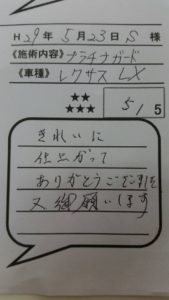 H29年5月23日 S 様
《施術内容》プラチナガード
《車種》レクサス LX
★★
★★★
5/5
きれいに
仕上がって
ありがとうございます
又 御願いします